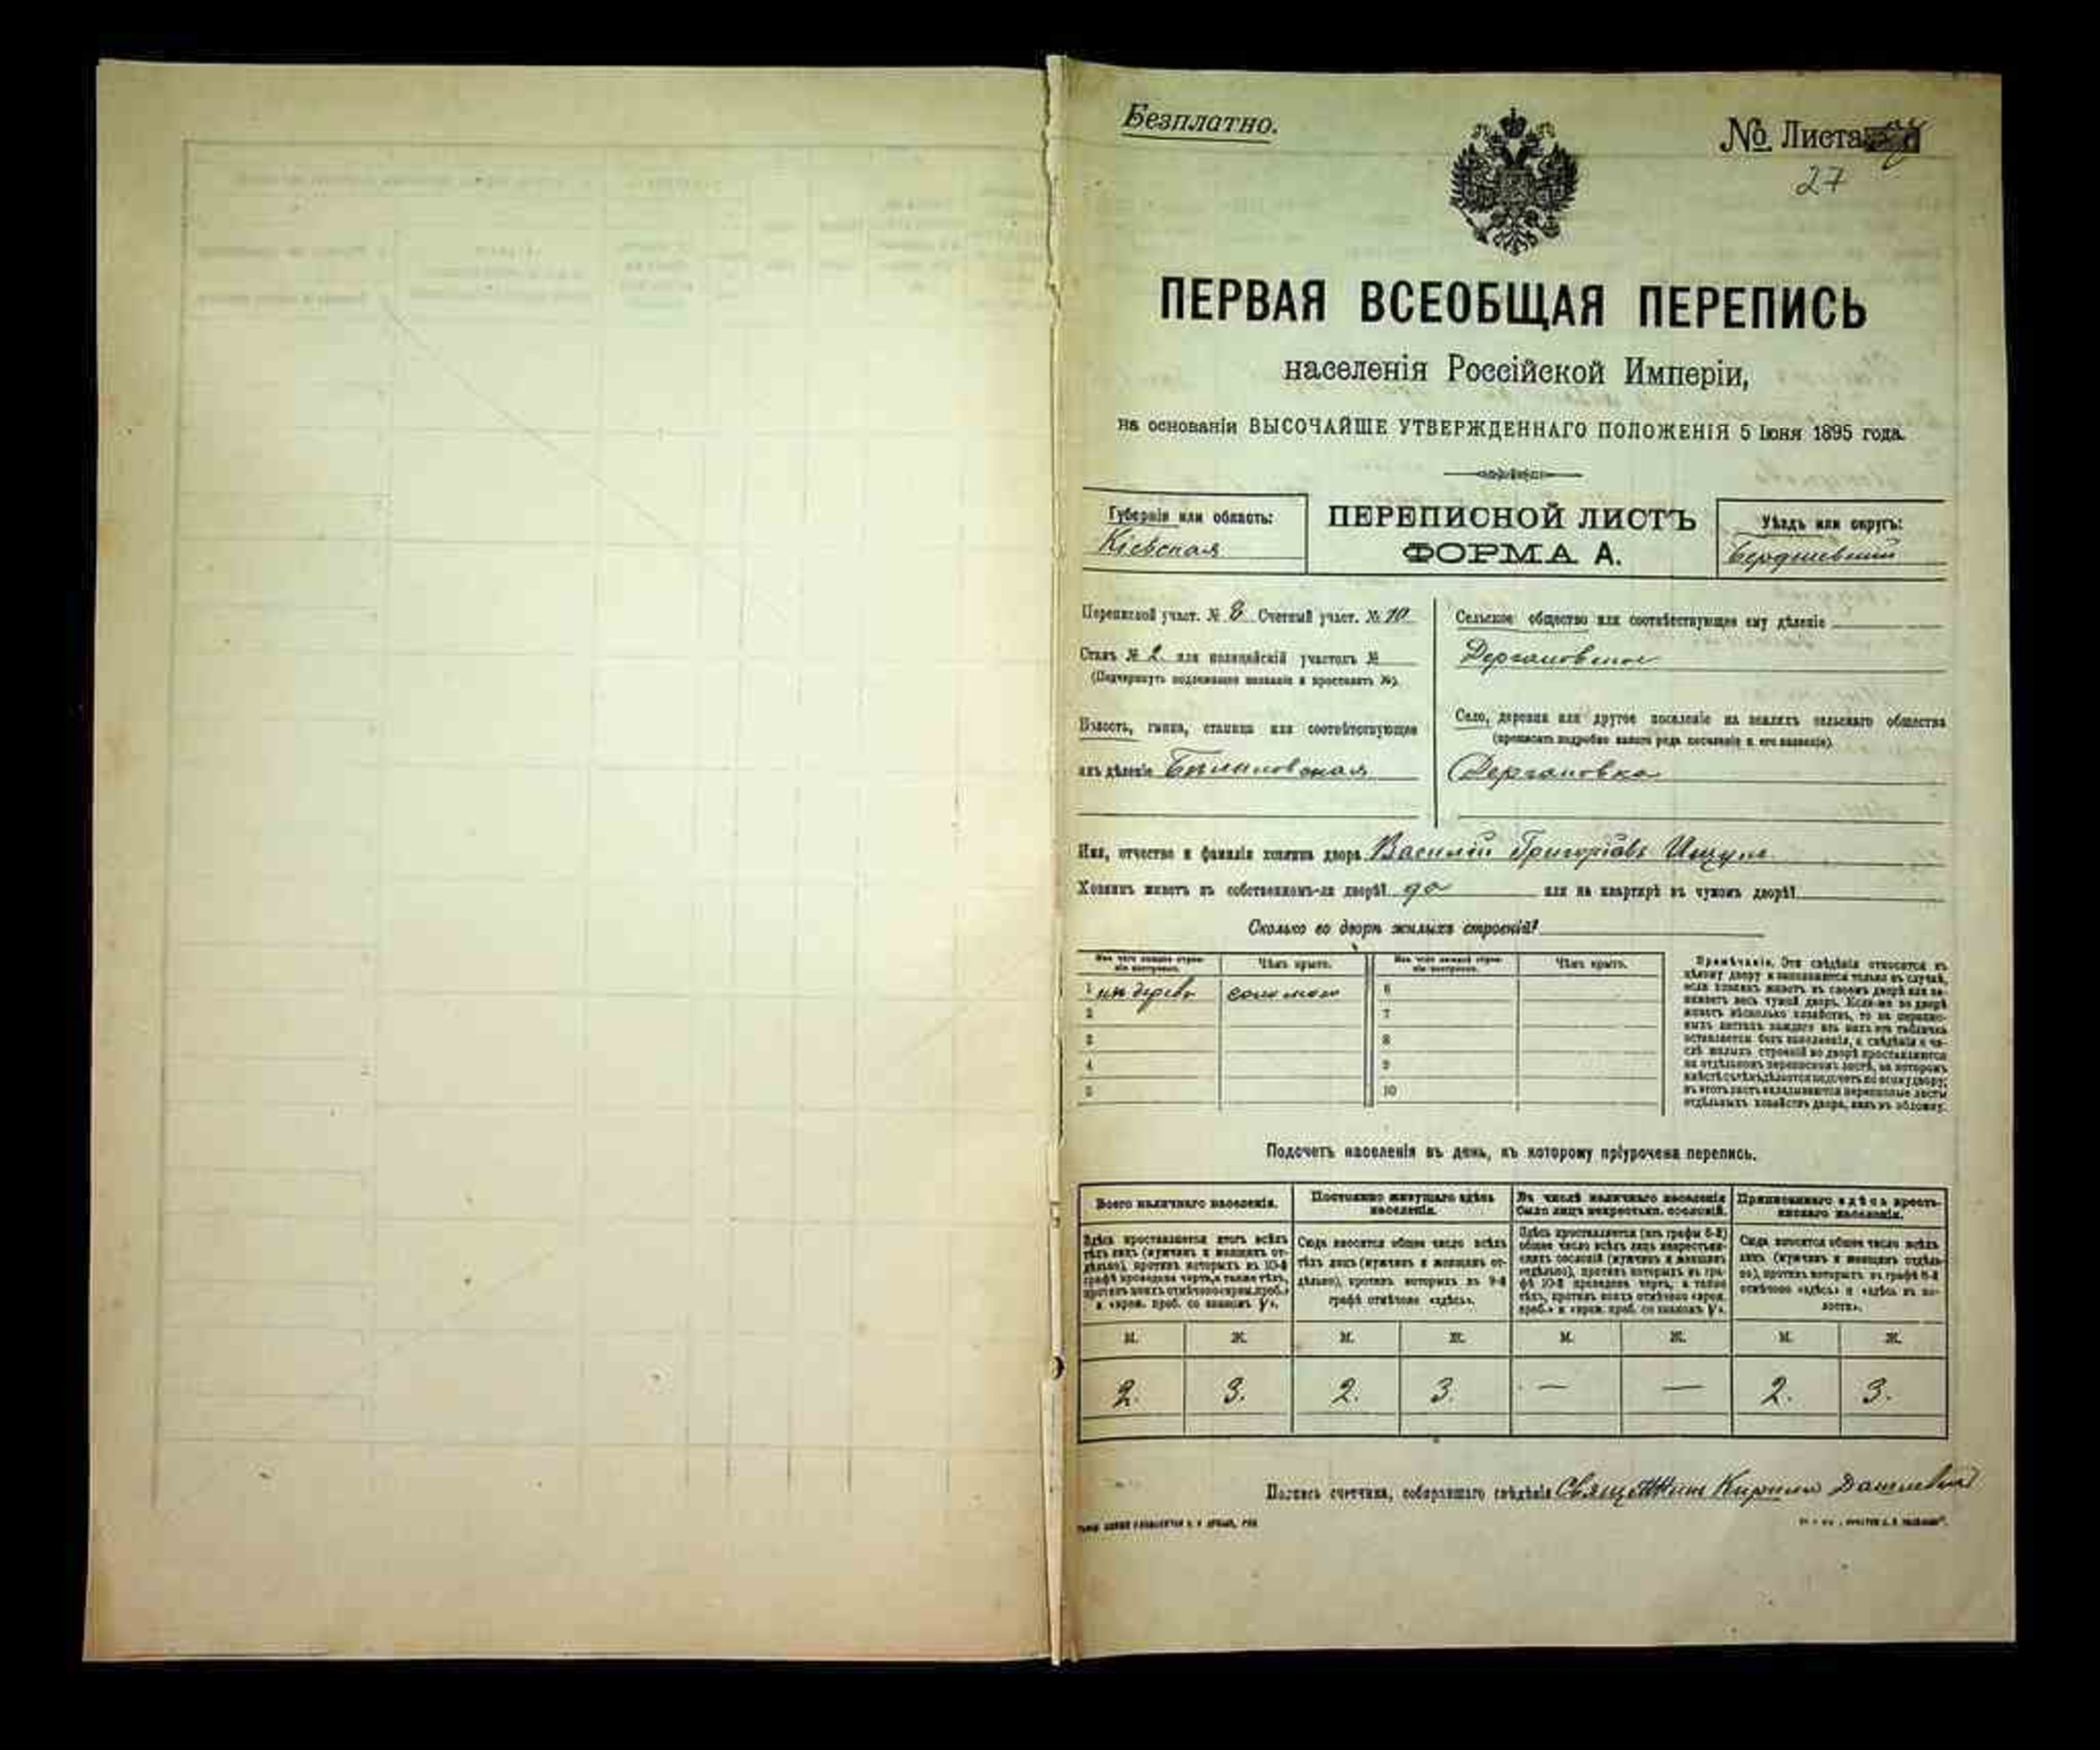 Безплатно.
№ Листа
27
ПЕРВАЯ ВСЕОБЩАЯ ПЕРЕПИСЬ
населенія Россійской Имперіи,
на основаніи ВЫСОЧАЙШЕ УТВЕРЖДЕННАГО ПОЛОЖЕНІЯ 5 Іюня 1895 года.
Губернія или область:
Кіевская
ПЕРЕПИСНОЙ ЛИСТЪ
ФОРМА А.
Уѣздъ или округъ:
Бердичевскій
Переписной участ. № 8 Счетный участ. № 10
Станъ № 2 или полицейскій участокъ №
(Подчеркнуть подлежащее названіе и проставить №).
Волость, гмина, станица или соотвѣтствующее
имъ дѣленіе Бѣлиловская
Сельское общество или соотвѣтствующее ему дѣленіе
Дергановское
Село, деревня или другое поселеніе на земляхъ сельскаго общества
(прописать подробно какого рода поселеніе и его названіе).
Дергановка
Имя, отчество и фамилія хозяина двора Василій Григоріевъ Ищукъ
Хозяинъ живетъ въ собственномъ-ли дворѣ? да или на квартирѣ въ чужомъ дворѣ?
Сколько во дворѣ жилыхъ строеній?
Изъ чего каждое строеніе построено. Чѣмъ крыто. Изъ чего каждое строеніе построено. Чѣмъ крыто.
1 изъ дерева соломою 6
2 7
3 8
4 9
5 10
Примѣчаніе. Эти свѣдѣнія относятся къ
цѣлому двору и заполняются только въ случаѣ,
если хозяинъ живетъ въ своемъ дворѣ или за-
нимаетъ весь чужой дворъ. Если-же во дворѣ
живетъ нѣсколько хозяйствъ, то на перепис-
ныхъ листахъ каждаго изъ нихъ эта табличка
оставляется безъ заполненія, а свѣдѣнія о чи-
слѣ жилыхъ строеній во дворѣ проставляются
на отдѣльномъ переписномъ листѣ, на которомъ
вмѣстѣ съ тѣмъ дѣлается подсчетъ по всему двору;
въ этотъ листъ вкладываются переписные листы
отдѣльныхъ хозяйствъ двора, какъ въ обложку.
Подсчетъ населенія въ день, къ которому пріурочена перепись.
Всего наличнаго населенія.
Здѣсь проставляется итогъ всѣхъ
тѣхъ лицъ (мужчинъ и женщинъ от-
дѣльно), противъ которыхъ въ 10-й
графѣ проведена черта, а также тѣхъ,
противъ коихъ отмѣчено «врем. проб.»
и «врем. проб. со знакомъ V».
Постоянно живущаго здѣсь
населенія.
Сюда вносится общее число всѣхъ
тѣхъ лицъ (мужчинъ и женщинъ от-
дѣльно), противъ которыхъ въ 9-й
графѣ отмѣчено «здѣсь».
Въ числѣ наличнаго населенія
было лицъ некрестьян. сословій.
Здѣсь проставляется (изъ графы 6-й)
общее число всѣхъ лицъ некрестьян-
скихъ сословій (мужчинъ и женщинъ
отдѣльно), противъ которыхъ въ гра-
фѣ 10-й проведена черта, а также
тѣхъ, противъ коихъ отмѣчено «врем.
проб.» и «врем. проб. со знакомъ V».
Приписаннаго здѣсь кресть-
янскаго населенія.
Сюда вносится общее число всѣхъ
лицъ (мужчинъ и женщинъ отдѣль-
но), противъ которыхъ въ графѣ 8-й
отмѣчено «здѣсь» и «здѣсь въ во-
лости».
М. Ж. М. Ж. М. Ж. М. Ж.
2. 3. 2. 3. — — 2. 3.
Подпись счетчика, собиравшаго свѣдѣнія Священникъ Кириллъ